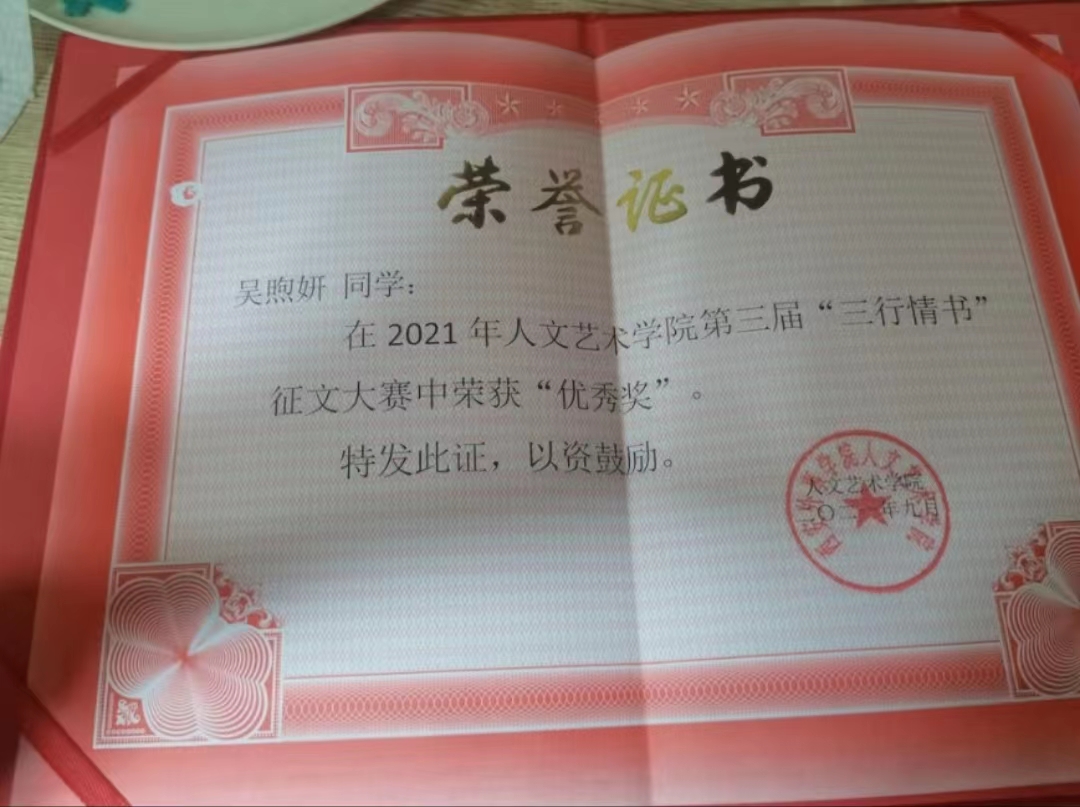 荣誉证书
吴煦妍 同学：
在 2021 年人文艺术学院第三届“三行情书”
征文大赛中荣获“优秀奖”。
特发此证，以资鼓励。
人文艺术学院
二〇二一年九月